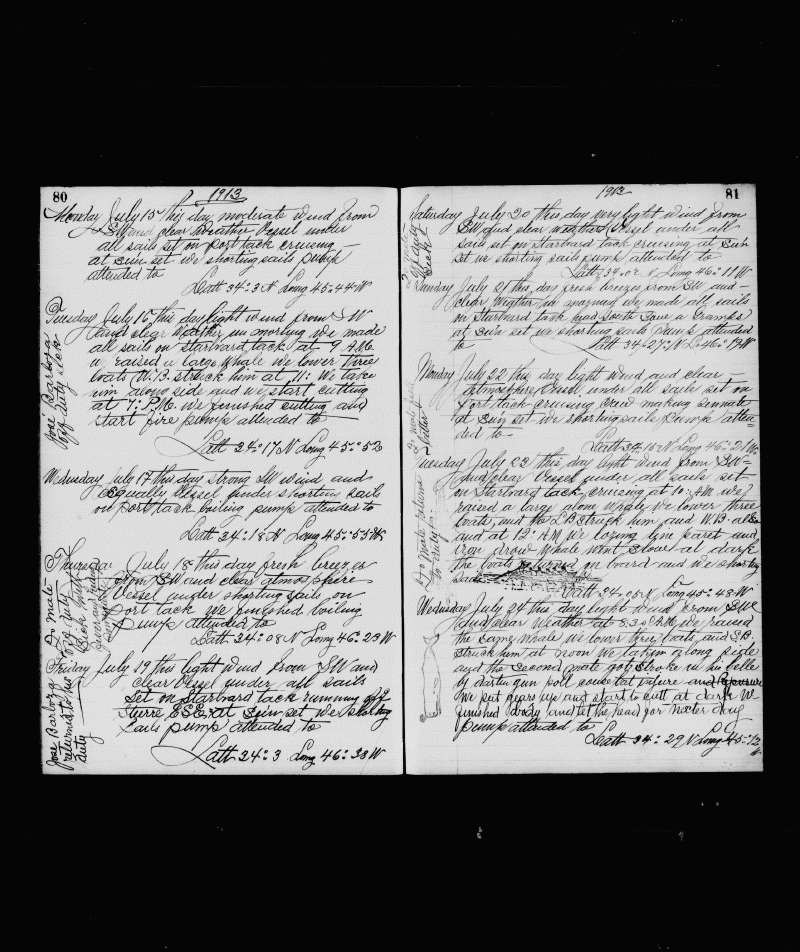 80
1913
Monday July 15 this day moderate wind from
SW and clear weather Vessel under
all sails set on port tack cruising
at sun set we shorting sails pump
attended to
Latt 34° 3 N Long 45:44 W
Tuesday July 16 this day light wind from SW
and clear weather in morning we made
all sails on Starbvard tack at 9 A.M.
we raised a large whale we lower three
boats W.B. struck him at 11: We take
him along side and we start cutting
at 1: P.M. we finished cutting and
start fire pump attended to
Latt 34:17 N Long 45:52
Jose Barboza
off duty sick
Wednesday July 17 this day strong SW wind and
squally Vessel under shorting sails
on port tack boiling pump attended to
Latt 34:18 N Long 45:55 W
Thursday July 18 this day fresh breezes
from SW and clear atmosphere
Vessel under shorting sails on
port tack we finished boiling
pump attended to
Latt 34:08 N Long 46:23 W
mate
off duty
Sick with
fever and
Friday July 19 this light wind from SW and
clear Vessel under all sails
set on Starbvard tack running off
Steere ESE. at sun set we shorting
sails pump attended to
Latt 34:3 Long 46:38 W
Jose Barboza
returned to his
duty
81
1913
Saturday July 20 this day very light wind from
SW and clear weather Vessel under all
sails set on Starbvard tack cruising at sun
set we shorting sails pump attended to
Latt 34.02 N Long 46:11 W
off duty
Sick
Sunday July 21 this day fresh breezes from SW and
clear weather in morning we made all sails
on Starbvard tack
at sun set we shorting sails pump attended
to Latt 34:27 N L 46:19 W
Monday July 22 this day light wind and clear
atmosphere Vessel under all sails set on
port tack cruising crew making sennate
at sun set we shorting sails pump atten=
ded to
Latt 34:15 N Long 46:21 W
mate feel
better
Tuesday July 23 this day light wind from SW
and clear Vessel under all sails set
on Starbvard tack cruseing at 10: A.M we
raised a large alone whale we lower three
boats and the L.B struck him and W.B. also
and at 12: A.M we losing line paret and
iron drow whale went slow at dark
the boats on board and we shorting
sails
Latt 34:05 N Long 45:43 W
mate returns
to duty
Wednesday July 24 this day light wind from SW
and clear weather at 8:30 A.M. we raised
the same whale we lower three boats and S.B.
struck him at noon We takim along side
and the Second mate got stroke in his belle
by dartin gun poll
We put gears up and start to cutt at dark We
finished body and let the head for nexter day
pump attended to
Latt 34:29 N Long 45:12
W